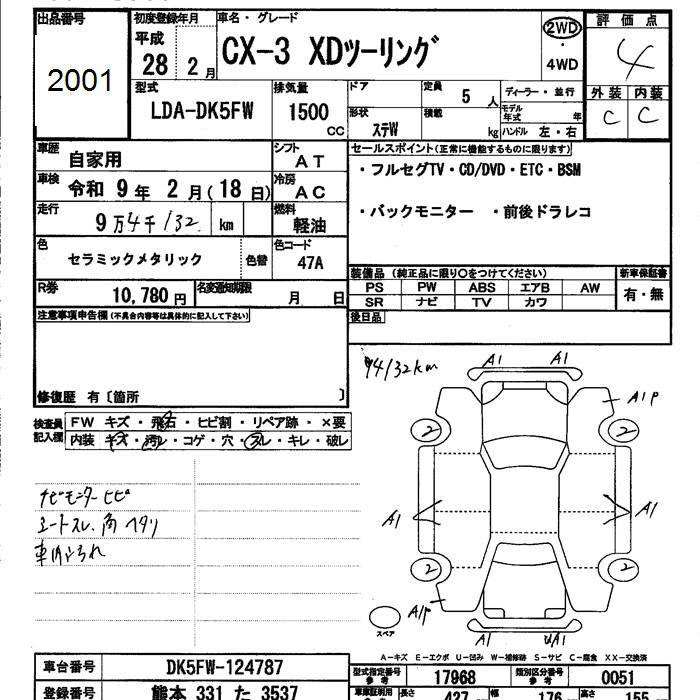 出品番号 初度登録年月 車名・グレード 評価点
2001 平成 28 2月 CX-3 XDツーリング 2WD・4WD 4
型式 排気量 ドア 定員 5人 ディーラー・並行 外装 内装
LDA-DK5FW 1500cc 形状 ステW 積載 kg モデル年式 年 ハンドル 左・右 C C
車歴 自家用 シフト AT セールスポイント(正常に機能するものに限ります)
車検 令和 9年 2月(18日) 冷房 AC ・フルセグTV・CD/DVD・ETC・BSM
走行 9万4千132 km 燃料 軽油 ・バックモニター ・前後ドラレコ
色 セラミックメタリック 色替 色コード 47A
装備品(純正品に限り○をつけてください) 新車保証書
R券 10,780円 名変通知期限 月 日 PS PW ABS エアB AW 有・無
SR ナビ TV カワ
注意事項申告欄(不具合内容等は具体的に記入して下さい) 後日品
94132km
修復歴 有〔箇所 〕
検査員記入欄 FW キズ・飛石・ヒビ割・リペア跡・×要
内装 キズ・汚レ・コゲ・穴・スレ・キレ・破レ
A1 A1
A1P
2 2
ナビモニターヒビ
シートスレ、角ヘタリ
車内よごれ
A1 A1
2 2
A1P
スペア
A1 UA1
A-キズ E-エクボ U-凹み W-補修跡 S-サビ C-腐食 XX-交換済
車台番号 DK5FW-124787 型式指定番号参考 17968 類別区分番号参考 0051
登録番号 熊本 331 た 3537 長さ 427 幅 176 高さ 155